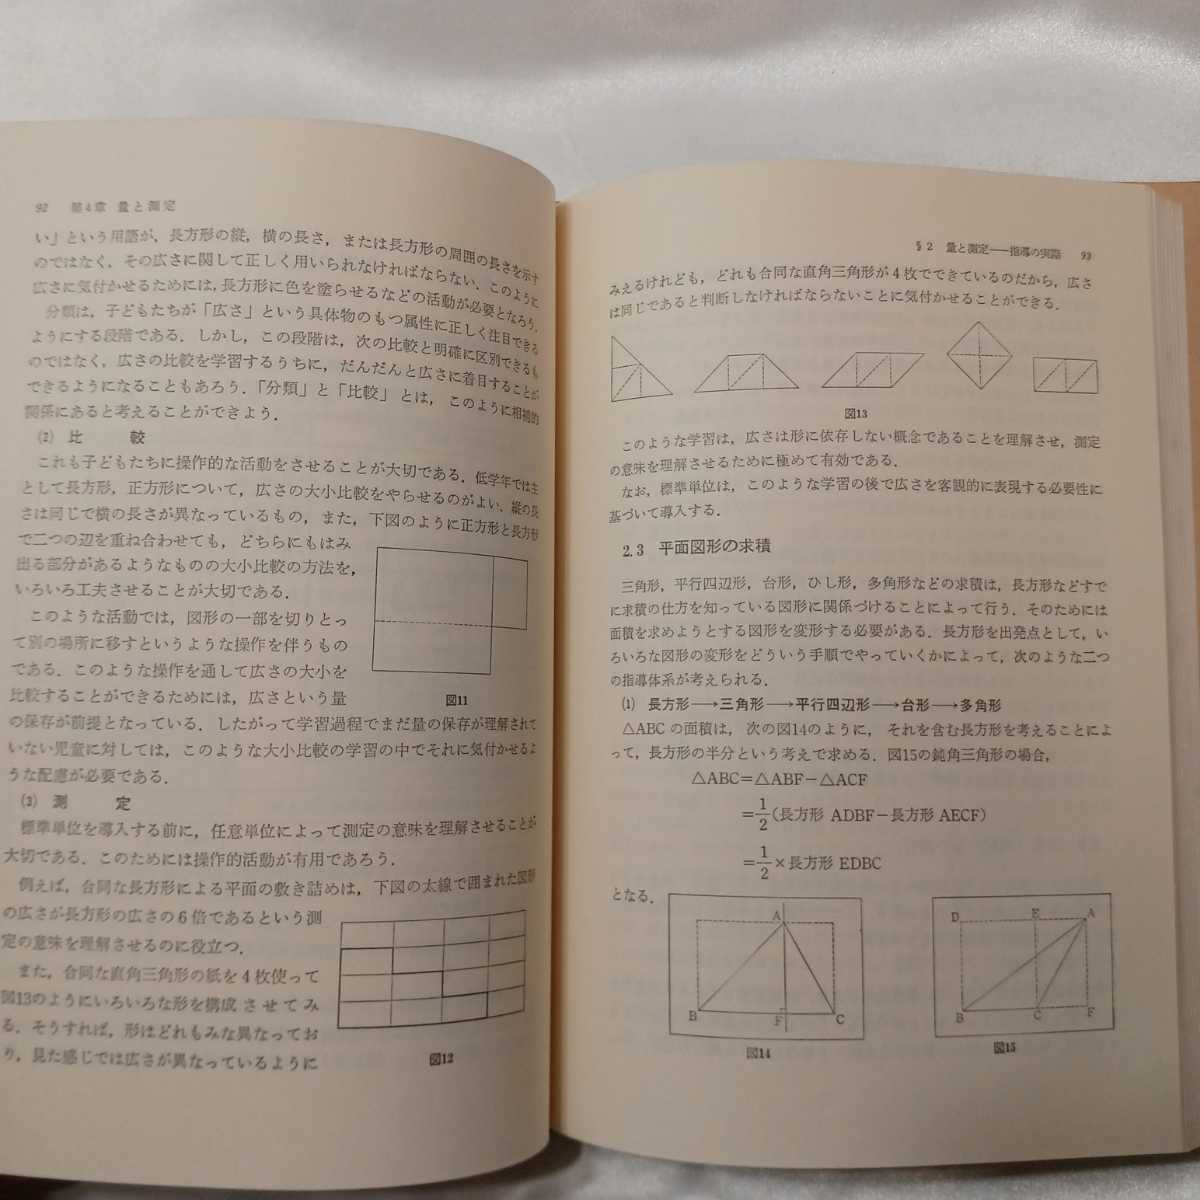 92　第4章 量と測定
い」という用語が，長方形の縦，横の長さ，または長方形の周囲の長さを示す
のではなく，その広さに関して正しく用いられなければならない．このように
広さに気付かせるためには，長方形に色を塗らせるなどの活動が必要となろう．
分類は，子どもたちが「広さ」という具体物のもつ属性に正しく注目できる
ようにする段階である．しかし，この段階は，次の比較と明確に区別できるも
のではなく，広さの比較を学習するうちに，だんだんと広さに着目することが
できるようになることもあろう．「分類」と「比較」とは，このように相補的
関係にあると考えることができよう．
(2) 比　較
これも子どもたちに操作的な活動をさせることが大切である．低学年では主
として長方形，正方形について，広さの大小比較をやらせるのがよい．縦の長
さは同じで横の長さが異なっているもの，また，下図のように正方形と長方形
で二つの辺を重ね合わせても，どちらにもはみ
出る部分があるようなものの大小比較の方法を，
いろいろ工夫させることが大切である．
このような活動では，図形の一部を切りとっ
て別の場所に移すというような操作を伴うもの
である．このような操作を通して広さの大小を
比較することができるためには，広さという量
図11
の保存が前提となっている．したがって学習過程でまだ量の保存が理解されて
いない児童に対しては，このような大小比較の学習の中でそれに気付かせるよ
うな配慮が必要である．
(3) 測　定
標準単位を導入する前に，任意単位によって測定の意味を理解させることが
大切である．このためには操作的活動が有用であろう．
例えば，合同な長方形による平面の敷き詰めは，下図の太線で囲まれた図形
の広さが長方形の広さの6倍であるという測
定の意味を理解させるのに役立つ．
また，合同な直角三角形の紙を4枚使って
図13のようにいろいろな形を構成させてみ
る．そうすれば，形はどれもみな異なってお
り，見た感じでは広さが異なっているように
図12
§2　量と測定――指導の実際　93
みえるけれども，どれも合同な直角三角形が4枚でできているのだから，広さ
は同じであると判断しなければならないことに気付かせることができる．
図13
このような学習は，広さは形に依存しない概念であることを理解させ，測定
の意味を理解させるために極めて有効である．
なお，標準単位は，このような学習の後で広さを客観的に表現する必要性に
基づいて導入する．
2.3　平面図形の求積
三角形，平行四辺形，台形，ひし形，多角形などの求積は，長方形などすで
に求積の仕方を知っている図形に関係づけることによって行う．そのためには
面積を求めようとする図形を変形する必要がある．長方形を出発点として，い
ろいろな図形の変形をどういう手順でやっていくかによって，次のような二つ
の指導体系が考えられる．
(1) 長方形→三角形→平行四辺形→台形→多角形
△ABCの面積は，次の図14のように，それを含む長方形を考えることによ
って，長方形の半分という考えで求める．図15の鈍角三角形の場合，
△ABC=△ABF−△ACF
=1/2(長方形 ADBF−長方形 AECF)
=1/2×長方形 EDBC
となる．
A
B
F
C
図14
D
E
A
B
C
F
図15